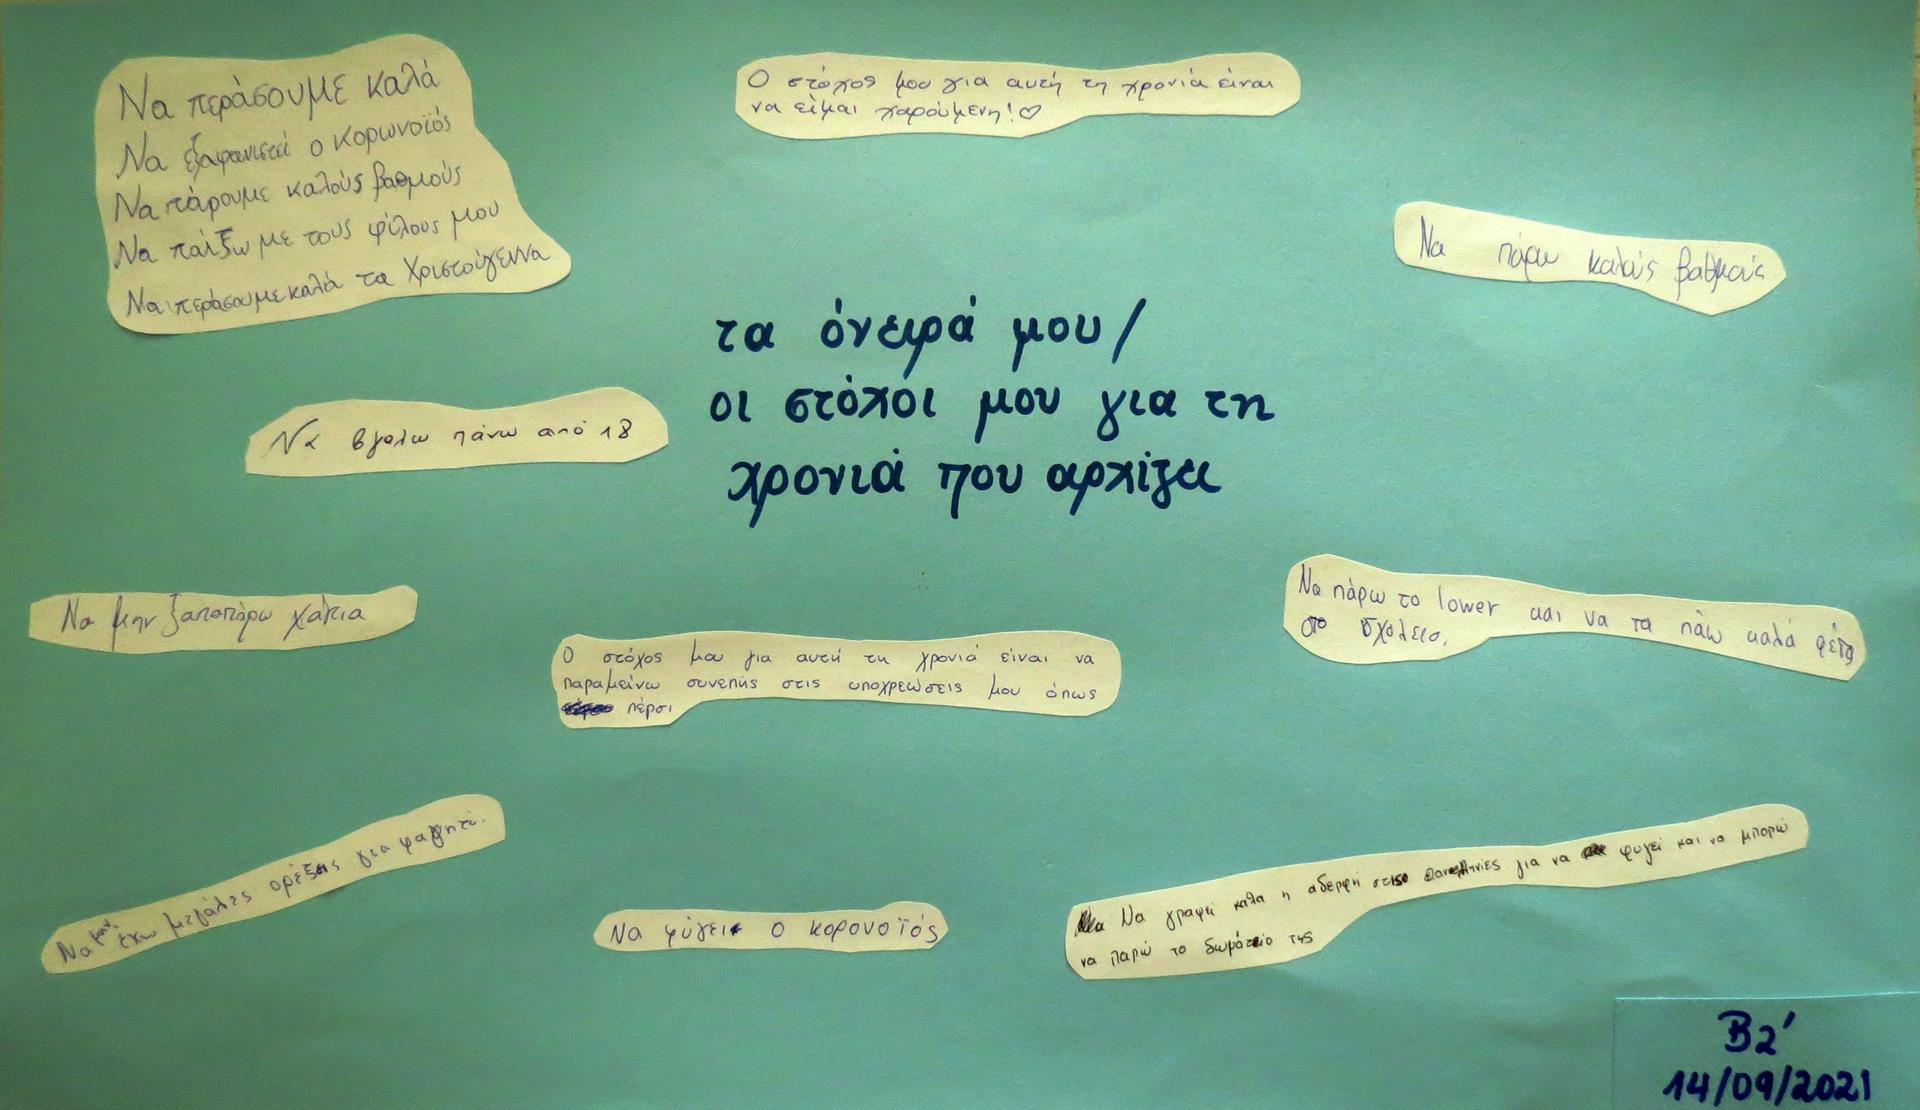 Να περάσουμε καλά
Να εξαφανιστεί ο κορωνοϊός
Να πάρουμε καλούς βαθμούς
Να παίξω με τους φίλους μου
Να περάσουμε καλά τα Χριστούγεννα
Ο στόχος μου για αυτή τη χρονιά είναι
να είμαι χαρούμενη!♡
Να πάρω καλούς βαθμούς
τα όνειρά μου/
οι στόχοι μου για τη
χρονιά που αρχίζει
Να βγαλω πάνω από 18
Να μην ξαναπάρω χάπια
Να πάρω το lower και να τα πάω καλά φέτος
στο σχολειο.
Ο στόχος μου για αυτή τη χρονιά είναι να
παραμείνω συνεπής στις υποχρεώσεις μου όπως
πέρσι
Να μην έχω μεγάλες ορέξεις για φαγητό.
Να φύγει ο κορονοϊός
Να γραψει καλα η αδερφή στις πανελληνίες για να φυγει και να μπορώ
να παρώ το δωμάτειο της
Β2'
14/09/2021